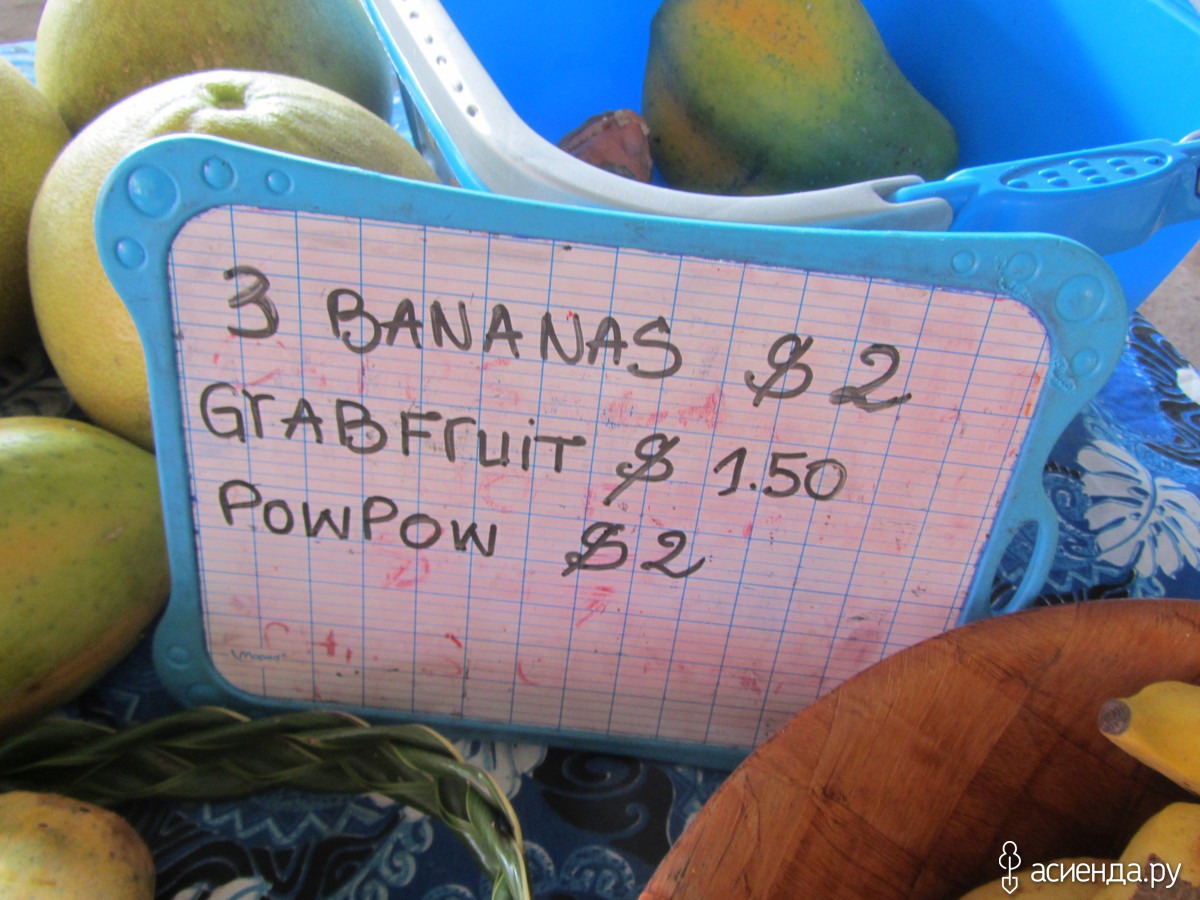 3 BANANAS $ 2
GrABFruiT $ 1.50
POWPOW $2
асиенда.ру